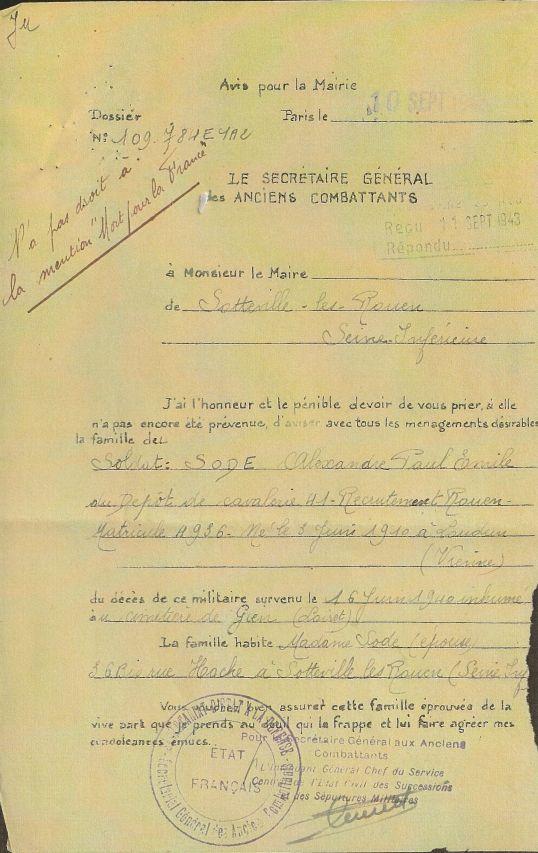 Avis pour la Mairie
Dossier
Paris le 10 SEPT
N° 109.781E1A2
N'a pas droit à
la mention "Mort pour la France"
LE SECRÉTAIRE GÉNÉRAL
des ANCIENS COMBATTANTS
Reçu 11 SEPT 1943
Répondu
à Monsieur le Maire
de Sotteville-les-Rouen
Seine-Inférieure
J'ai l'honneur et le pénible devoir de vous prier, si elle
n'a pas encore été prévenue, d'aviser avec tous les menagements désirables
la famille del
Soldat: SODE Alexandre Paul Emile
du Dépôt de cavalerie 41-Recrutement Rouen-
Matricule A936- Né le 3 Juin 1910 à Loudun
(Vienne)
du décès de ce militaire survenu le 16 Juin 1940 inhumé
au cimetière de Gien (Loiret)
La famille habite Madame Sode (épouse)
36 Bis rue Hache à Sotteville les Rouen (Seine Inf
Vous voudrez bien assurer cette famille éprouvée de la
vive part que je prends au deuil qui la frappe et lui faire agréer mes
condoléances émues.
Pour le Secrétaire Général aux Anciens
Combattants
L'Intendant Général Chef du Service
Central de l'Etat Civil des Successions
et des Sépultures Militaires
ÉTAT
FRANÇAIS
Secrétariat Général des Anciens Combattants